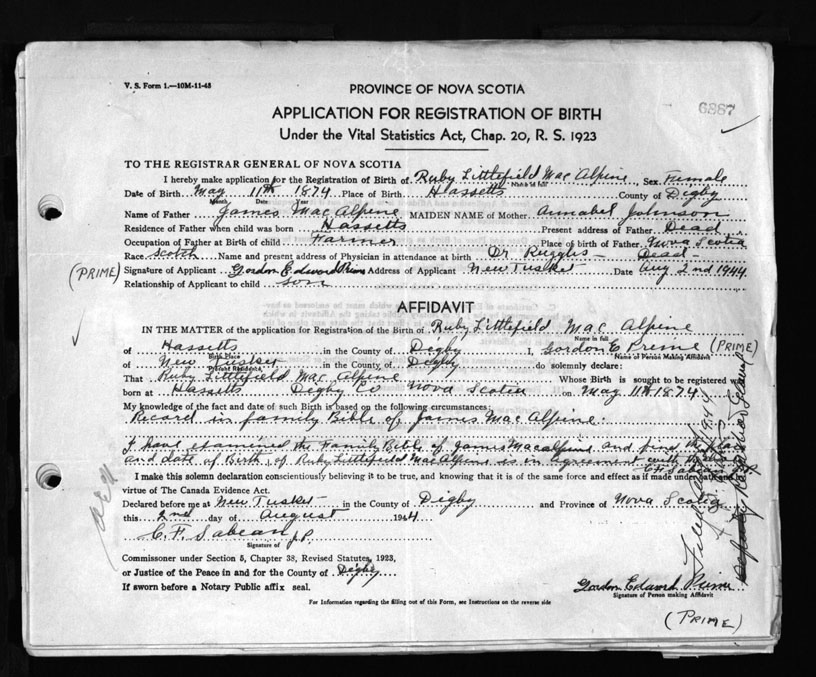 V. S. Form 1.—10M-11-43
PROVINCE OF NOVA SCOTIA
6867
APPLICATION FOR REGISTRATION OF BIRTH
Under the Vital Statistics Act, Chap. 20, R. S. 1923
TO THE REGISTRAR GENERAL OF NOVA SCOTIA
I hereby make application for the Registration of Birth of Ruby Littlefield Mac Alpine, Sex Female
Name in full
Date of Birth May 11th 1874 Place of Birth Hassetts County of Digby
Month Date Year
Name of Father James Mac Alpine MAIDEN NAME of Mother Annabel Johnson
Residence of Father when child was born Hassetts Present address of Father Dead
Occupation of Father at Birth of child Farmer Place of Birth of Father Nova Scotia
Race Scotch Name and present address of Physician in attendance at birth Dr Ruggles - Dead -
(PRIME) Signature of Applicant Gordon Edward Prime Address of Applicant New Tusket Date Aug 2nd 1944
Relationship of Applicant to child son
AFFIDAVIT
IN THE MATTER of the application for Registration of the Birth of Ruby Littlefield Mac Alpine
Name in full
of Hassetts in the County of Digby I, Gordon E Prime (PRIME)
Birth Place Name of Person Making Affidavit
of New Tusket in the County of Digby do solemnly declare:
Present Residence
That Ruby Littlefield Mac Alpine Whose Birth is sought to be registered was
born at Hassetts Digby Co Nova Scotia on May 11th 1874
My knowledge of the fact and date of such Birth is based on the following circumstances:
Record in family Bible of James Mac Alpine.
I have examined the Family Bible of James Macalpine and find the place
and date of Birth, of Ruby Littlefield MacAlpine is in agreement with
C. F. Sabean
I make this solemn declaration conscientiously believing it to be true, and knowing that it is of the same force and effect as if made under oath and by
virtue of The Canada Evidence Act.
Declared before me at New Tusket in the County of Digby and Province of Nova Scotia
this 2nd day of August 1944
C. F. Sabean J.P.
Signature of
Commissioner under Section 5, Chapter 38, Revised Statutes, 1923,
or Justice of the Peace in and for the County of Digby
If sworn before a Notary Public affix seal.
Gordon Edward Prime
Signature of Person making Affidavit
For Information regarding the filling out of this Form, see Instructions on the reverse side
(PRIME)
Filed
1944
Deputy Registrar General